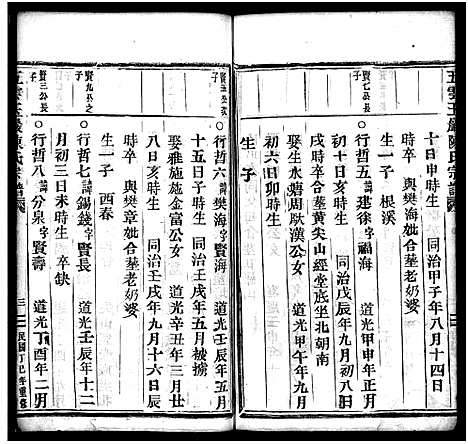 五雲玉巖陳氏宗譜
十日申時生 同治甲子年八月十四日
賢七公長子
○行哲五諱建徐字福海 道光甲申年正月
初十日亥時生 同治壬戌年九月初八日
時卒 與樊章妣合塟老奶婆
生一子 根溪
娶生水碧周馭漢公女 道光甲午年九月
初六日卯時生
生 子
○行哲六諱樊海字賢海 道光壬辰年五月
十五日子時生 同治壬戌年五月被擄
娶雅施施金富公女 道光辛丑年三月廿
八日亥時生 同治壬戌年九月十六日辰
生一子 酉春
賢九公之子
○行哲七諱錫錢字賢長 道光壬辰年十二
月初三日未時生 卒缺
賢三公長子
○行哲八諱分泉字賢壽 道光丁酉年二月
五雲玉巖陳氏宗譜
三
民國丁巳年重修